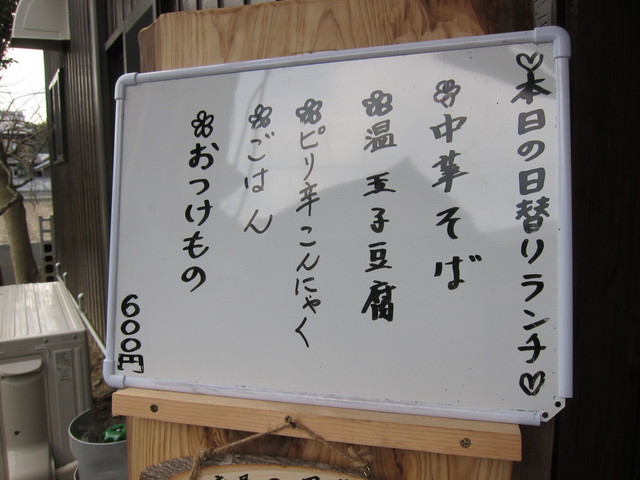 ♡本日の日替りランチ♡
中華そば
温玉子豆腐
ピリ辛こんにゃく
ごはん
おつけもの
600円